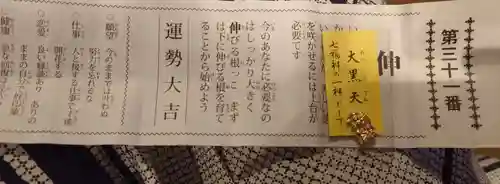 第三十一番
伸
大黒天
七福神の一神
を咲かせるには土台が
必要です
今のあなたに必要なの
はしっかり大きく
伸びる根っこ まず
は下に伸びる根を育て
ることから始めよう
運勢大吉
○願望
今のままでは叶わぬ
努力を忘れるな
○仕事
人と接する仕事で
開花する
○恋愛
良い縁談あり
ありの
ままの自分
○健康